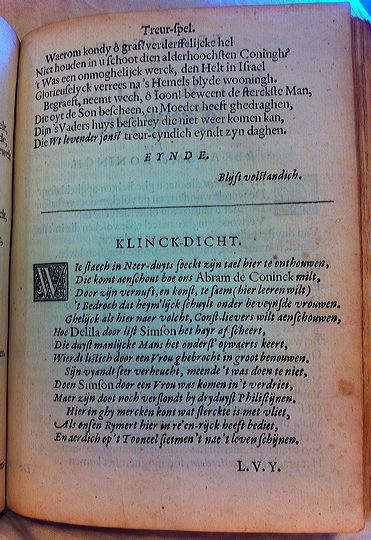 Treur-spel.
Waerom kondy ô graf! verderffelijcke hel
Niet houden in u schoot dien alderhoochsten Coningh?
't Was een onmoghelijck werck, den Helt in Israel
Glorieuselyck verrees na's Hemels blyde wooningh.
Begraeft, neemt wech, ô Ioon! beweent de sterckste Man,
Die oyt de Son bescheen, en Moeder heeft ghedraghen,
Dijn 's Vaders huys beschrey die niet weer komen kan,
Die Wt levender jonst treur-eyndich eyndt zyn daghen.
EYNDE.
Blijft volstandich.
KLINCK-DICHT.
WIe staech in Neer-duyts soeckt zijn tael hier te onthouwen,
Die komt aenschout hoe ons Abram de Coninck milt,
Door zijn vernuft, en konst, te saem (hier leeren wilt)
't Bedroch dat heym'lijck schuylt onder beveynsde vrouwen.
Ghelijck als hier naer volcht, Const-lievers wilt aenschouwen,
Hoe Delila door list Simson het hayr afscheert,
Die duyst manlijcke Mans het onderst' opwaerts keert,
Wierdt listich door een Vrou ghebrocht in groot benouwen.
Sijn vyandt seer verheucht, meende 't was doen te niet,
Doen Simson door een Vrou was komen in 't verdriet,
Maer zijn doot noch verslondt by dryduyst Philistijnen.
Hier in ghy mercken kont wat sterckte is met vliet,
Als onsen Rymert hier in re'en-rijck heeft bediet,
En aerdich op 't Tooneel sietmen't nae 't leven schijnen.
L. V. Y.